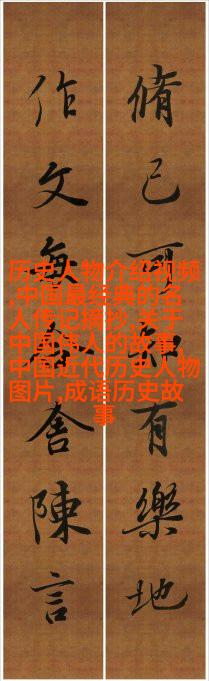 脩己可知有樂地
作文每舍陳言
历史人物介绍视频
,中国最经典的名
人传记摘抄,关于
中国伟人的故事,
中国近代历史人物
图片,成语历史故
事